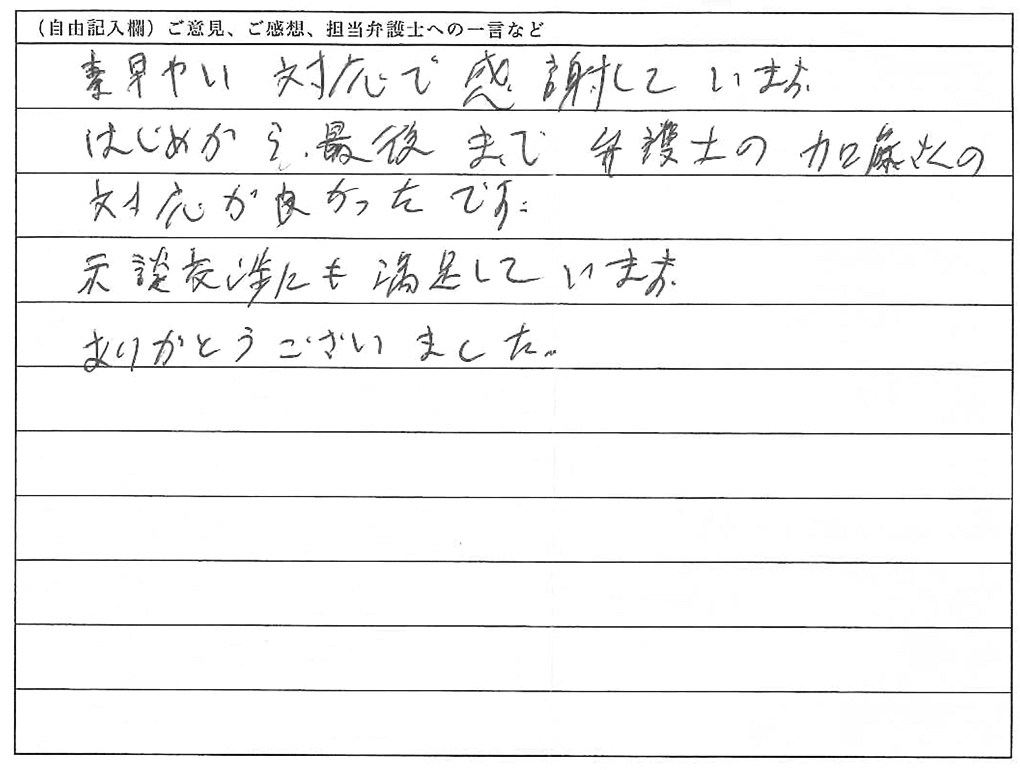 （自由記入欄）ご意見、ご感想、担当弁護士への一言など
素早やい 対応で 感謝して います。
はじめから、最後 まで 弁護士の 加藤さんの
対応が良かった です。
示談交渉にも 満足して います。
ありがとうございました。